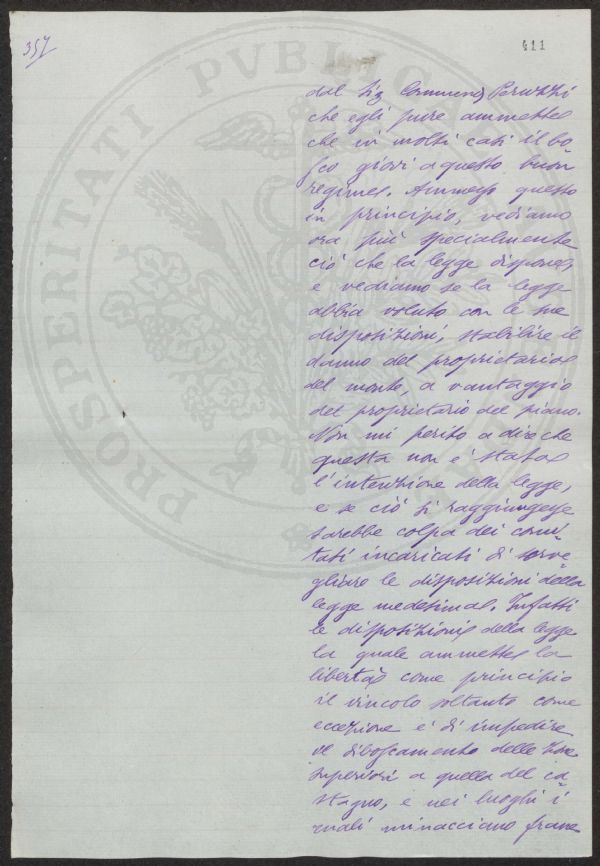 357
411
PROSPERITATI PVBLICAE
dal Sig Commend Peruzzi
che egli pure ammette
che in molti casi il bo
sco giovi a questo buon
regime. Ammesso questo
in principio, vediamo
ora più specialmente
ciò che la legge dispone,
e vediamo se la legge
abbia voluto con le sue
disposizioni, stabilire il
danno del proprietario
del monte, a vantaggio
del proprietario del piano.
Non mi perito a dire che
questa non è stata
l'intenzione della legge,
e se ciò si raggiungesse
sarebbe colpa dei comi
tati incaricati di sorve
gliare le disposizioni della
legge medesima. Infatti
le disposizioni della legge
la quale ammette la
libertà come principio
il vincolo soltanto come
eccezione e di impedire
il disboscamento delle zone
superiori a quella del ca
stagno, e nei luoghi i
quali minacciano frane